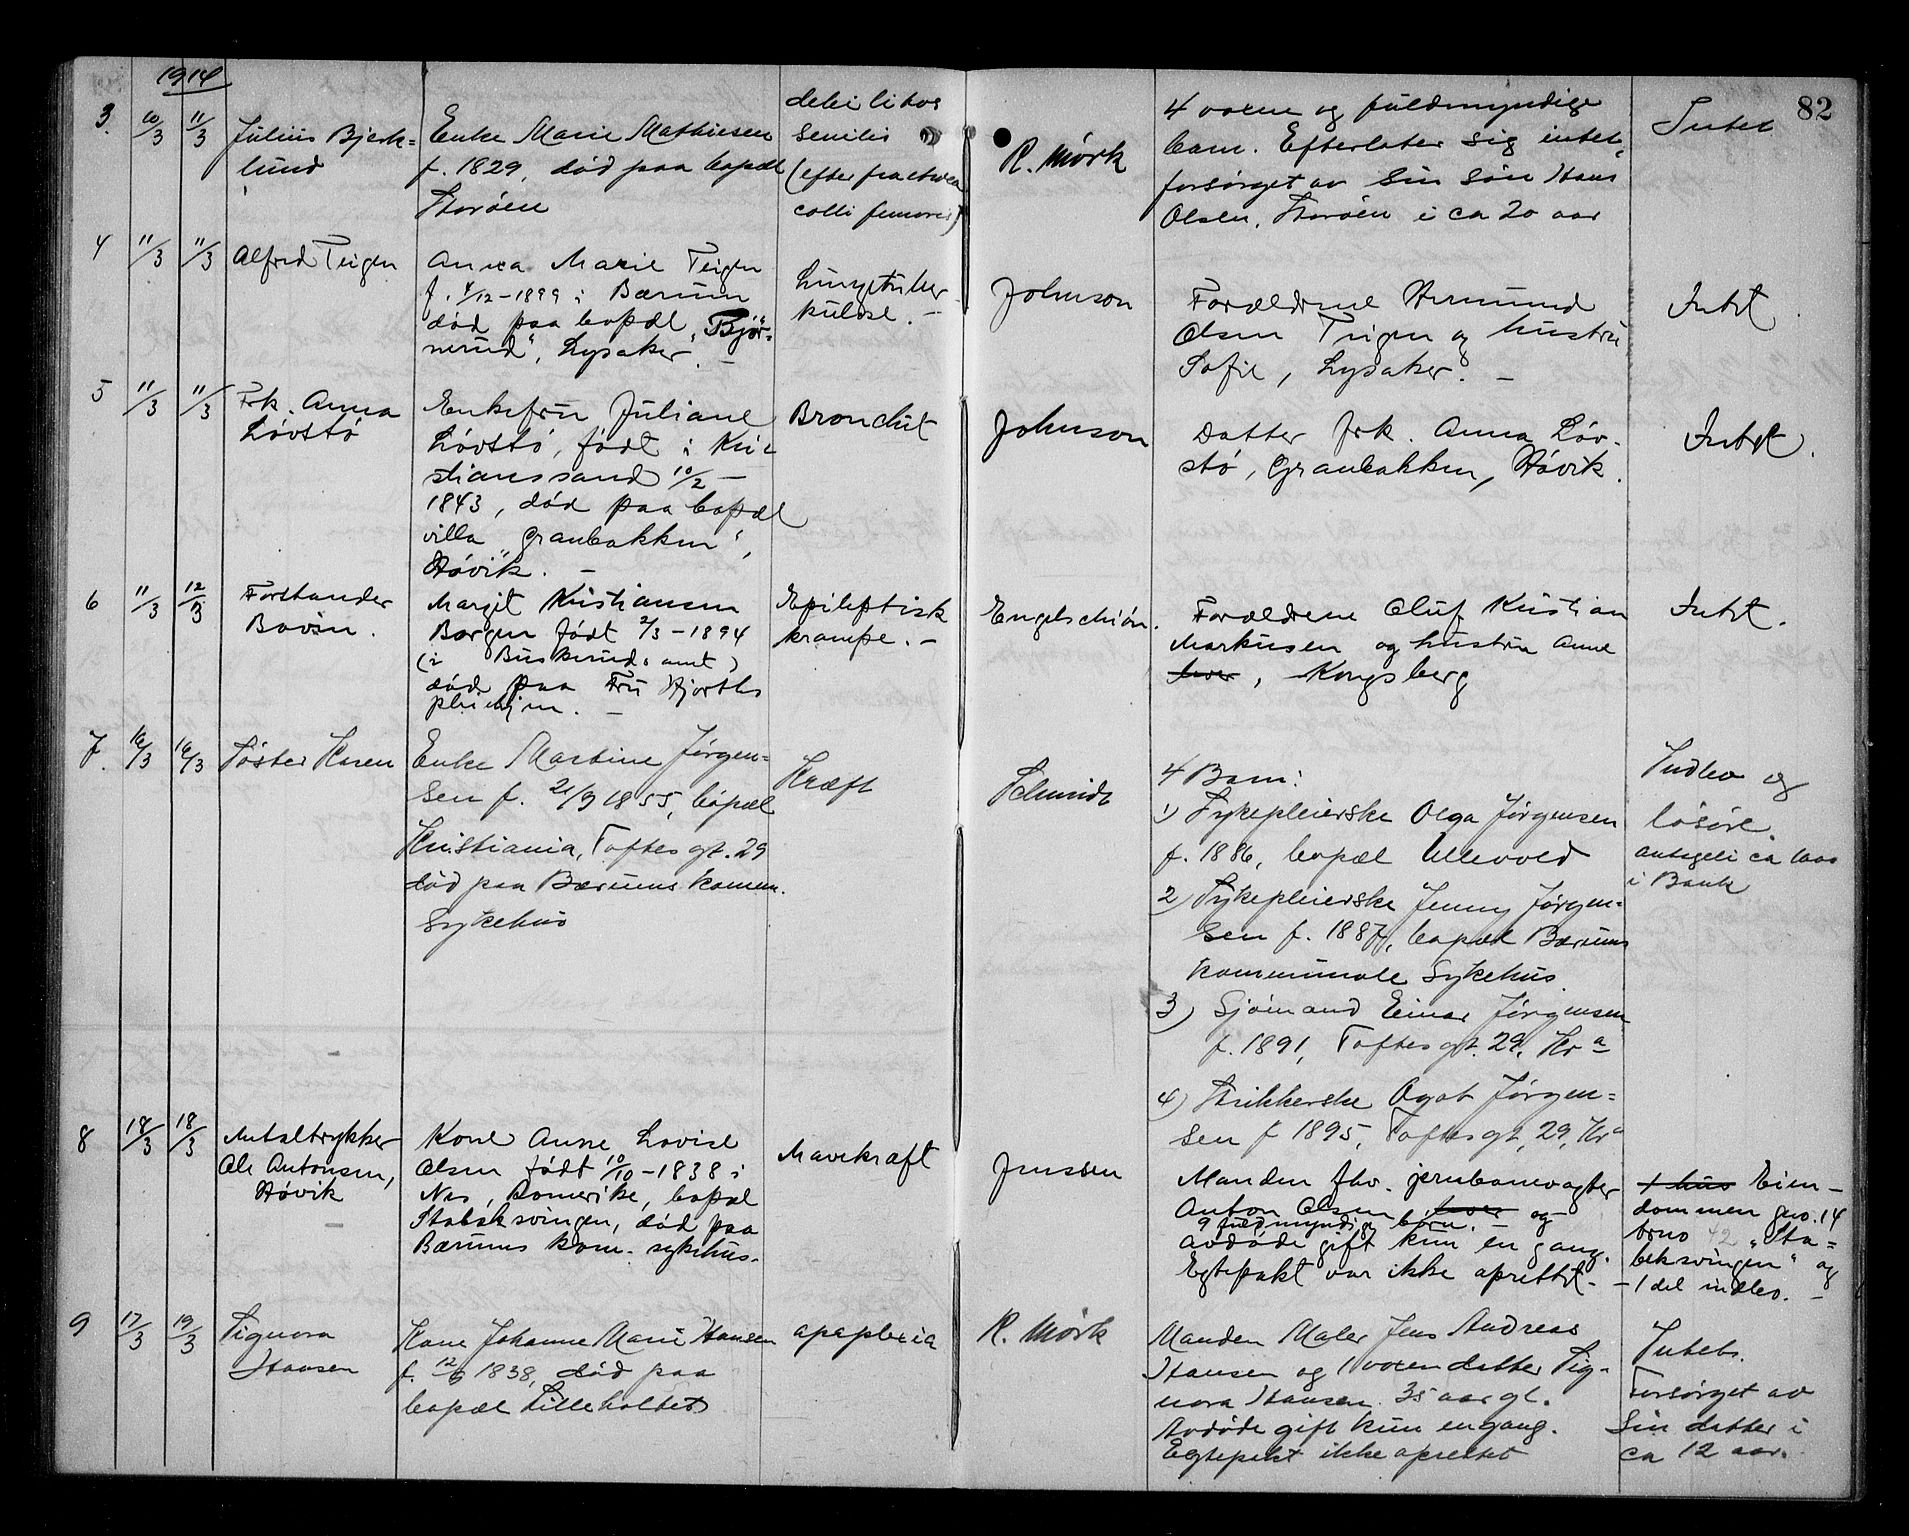 1914
82
3. 10/3 11/3 Julius Bjerk=
lund
Enke Marie Mathiesen
f. 1829, død paa bopæl
Storøen
debilitas
senilis
(efter fractura
colli femoris)
R. Mørk
4 voxne og fuldmyndige
barn. Efterlater sig intet,
forsørget av sin søn Hans
Olsen, Storøen i ca 20 aar
Intet
4 11/3 11/3 Alfred Teigen
Anna Marie Teigen
f. 4/12-1899 i Bærum
død paa bopæl "Bjør-
nerud", Lysaker. -
Lungetuber-
kulose. -
Johnson
Forældrene Hermund
Olsen Teigen og hustru
Sofie, Lysaker. -
Intet.
5 11/3 11/3 Frk. Anna
Løvstø
Enkefru Juliane
Løvstø, født i Kri-
stianssand 10/2 -
1843, død paa bopæl
villa "Granbakken",
Høvik. -
Bronchit
Johnson
Datter frk. Anna Løv-
stø, Granbakken, Høvik.
Intet.
6 11/3 12/3 Forstander
Margit Kristiansen
Borgen født 2/3-1894
(i Buskeruds amt)
død paa Fru Hjorths
pleiehjem. -
Epileptisk
krampe. -
Engelschiøn.
Forældrene Oluf Kristian
Markusen og hustru Anne
lever, Kongsberg
Intet.
7. 16/3 16/3 Søster Karen
Enke Martine Jørgen=
sen f. 21/9 1855, bopæl
Kristiania, Toftes gt. 29
død paa Bærums komm.
Sykehus
Kræft
Schmidt
4 Barn:
1) Sykepleierske Olga Jørgensen
f. 1886, bopæl Ullevold
2) Sykepleierske Jenny Jørgen=
sen f. 1887, bopæl Bærums
kommunale Sykehus.
3) Sjømand Einar Jørgensen
f. 1891, Toftes gt. 29. Kra
4) Strikkerske Agot Jørgen=
sen f 1895, Toftes gt, 29, Kra
Indbo og
løsøre.
antageli ca
i Bank
8 18/3 18/3
Ole Antonsen,
Høvik
Kone Anne Lovise
Olsen født 10/10-1838 i
Nes, Romerike, bopæl
Stabæksvingen, død paa
Bærums kom. sykehus.
Mavekræft
Jenssen
Manden fhv. jernbanevogter
Anton Olsen, lever og
9 fuldmyndig børn. -
avdøde gift kun en gang.
Egtepakt var ikke oprettet. -
1 hus Eien-
dommen gno. 14
brno 42 "Sta=
beksvingen" og
- 1 del indbo. -
9 17/3 19/3 Signora
Hansen
Kone Johanne Marie Hansen
f. 12/9 1838, død paa
bopæl Lilleholtet
apoplexia
R. Mørk
Manden Maler Jens Andreas
Hansen og 1 voxen datter Sig-
nora Hansen 35 aar gl.
Avdøde gift kun en gang.
Egtepakt ikke oprettet
Intet.
Forsørget av
sin datter i
ca 12 aar.